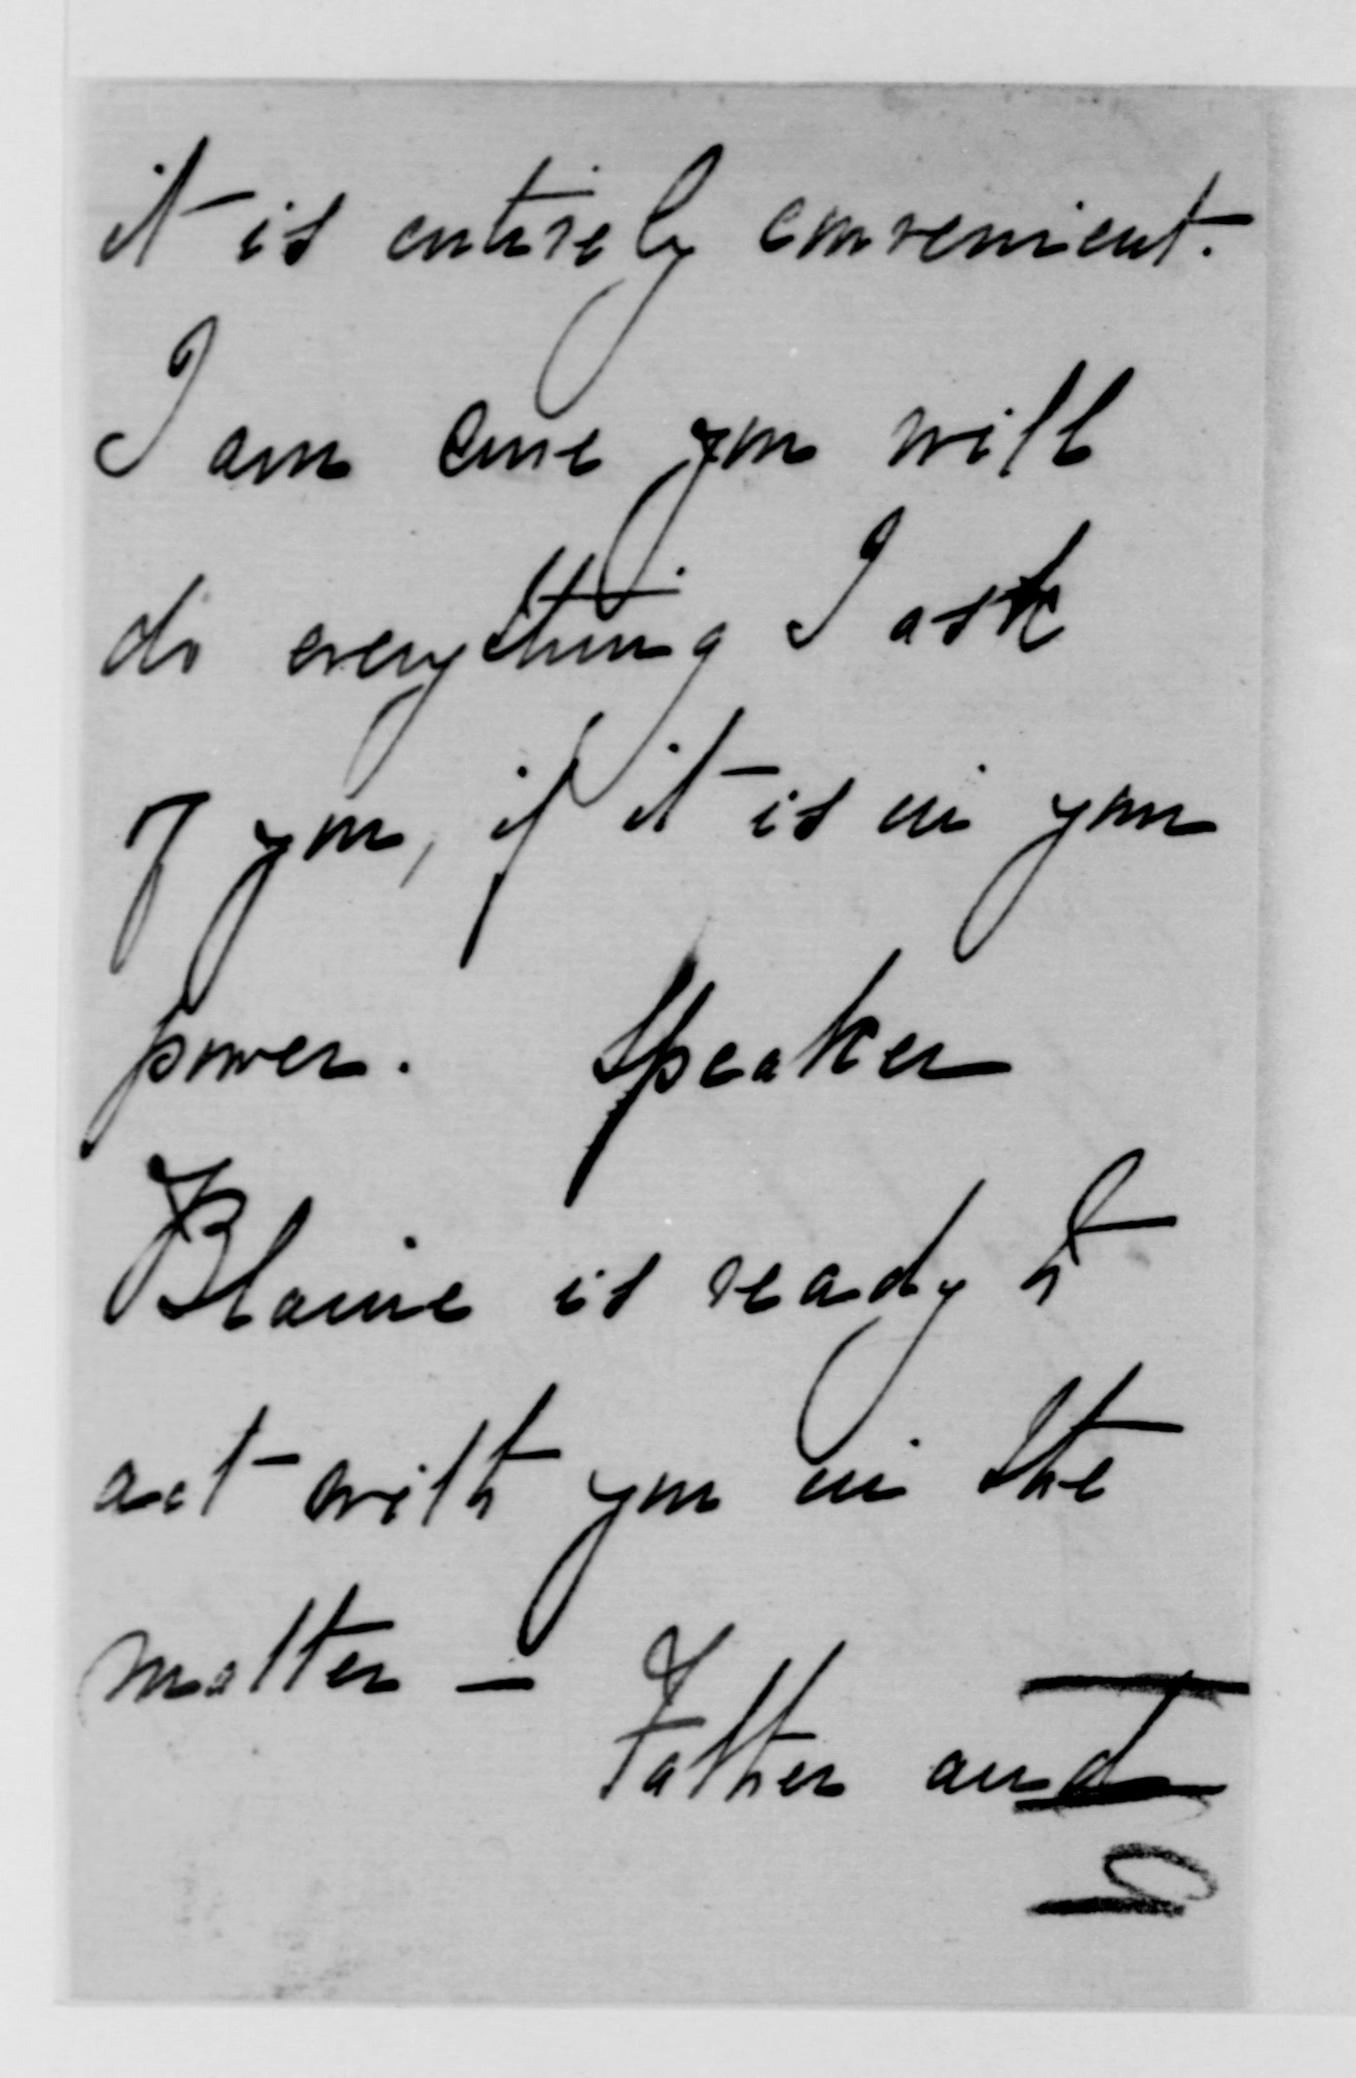 it is entirely convenient.
I am sure you will
do everything I ask
of you, if it is in your
power. Speaker
Blaine is ready to
act with you in the
matter — Father and